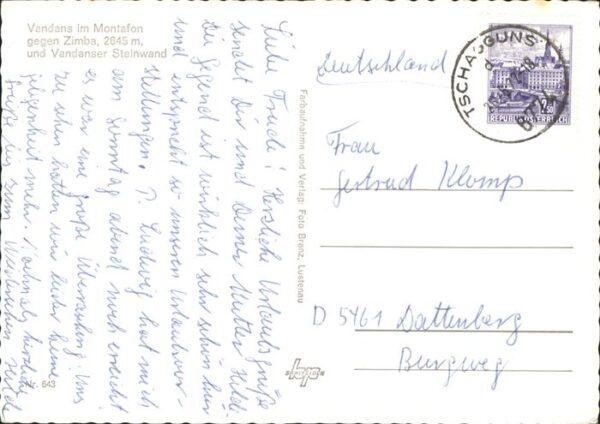 Vandans im Montafon
gegen Zimba, 2645 m,
und Vandanser Steinwand
Liebe Trude! Herzliche Urlaubsgrüße
sendet Dir und Deiner Mutter Hilde.
Die Gegend ist wirklich sehr schön hier
und entspricht so unseren Urlaubsvor-
stellungen. P. Ludwig hat mich
am Sonntag abend noch erreicht
es war eine große Überraschung. Uns
zu sehen hatten wir leider keine
gelegenheit mehr. Nochmals herzliche
Grüße bis zum Hilde
Nr. 643
Farbaufnahme und Verlag: Foto Branz, Lustenau
Deutschland
TSCHAGGUNS
2.50
REPUBLIK ÖSTERREICH
Frau
Gertrud Klomp
D 5461 Dattenberg
Burgweg